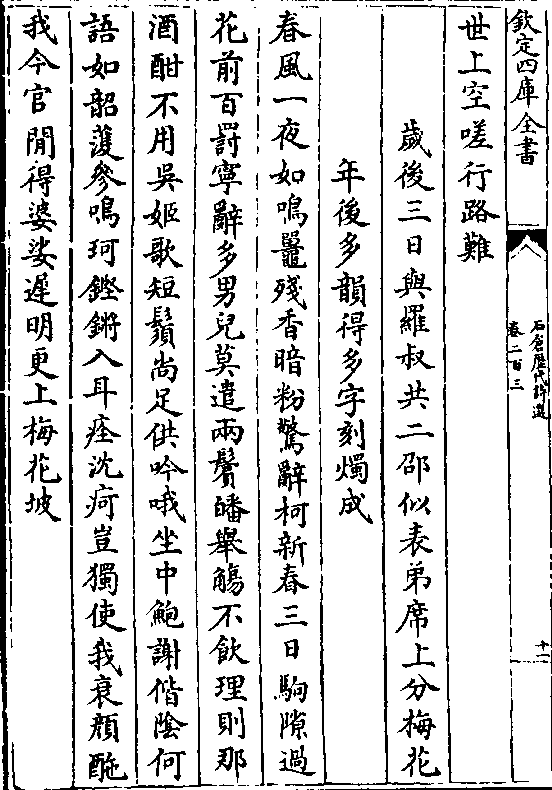 欽定四庫全書
石倉歷代詩選
卷二百三
十一
世上空嗟行路難
歲後三日與羅叔共二邵似表弟席上分梅花
年後多韻得多字刻燭成
春風一夜如鳴鼉殘香暗粉驚辭柯新春三日駒隙過
花前百罰寧辭多男兒莫遣兩鬢皤舉觴不飲理則那
酒酣不用吳姬歌短鬚尚足供吟哦坐中鮑謝偕陰何
語如韶䕶參鳴珂鏗鏘入耳痊沈疴豈獨使我衰顏酡
我今官閒得婆娑遲明更上梅花坡